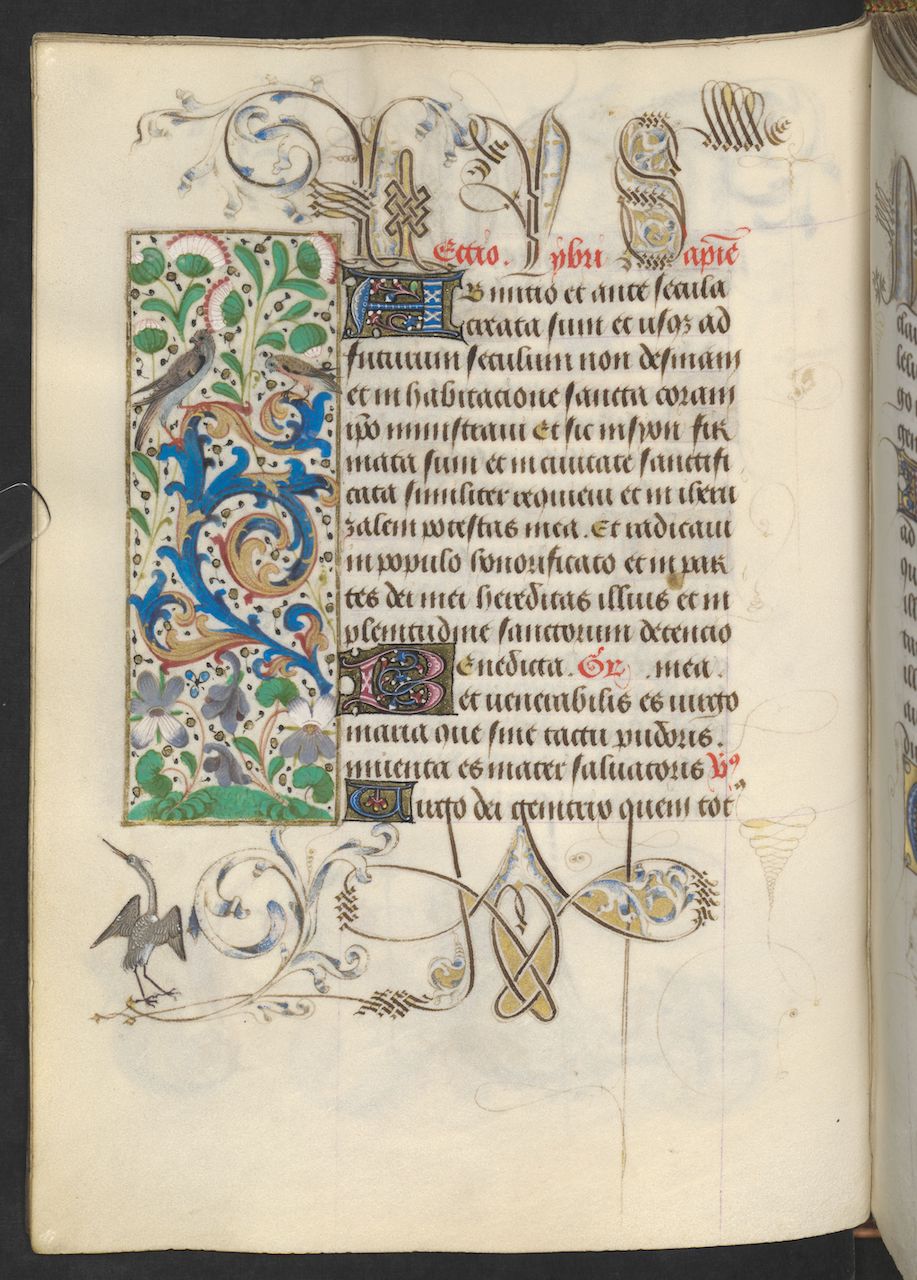 Lectio. Lybri Sapiē
AB initio et ante secula
creata sum et usq3 ad
futurum seculum non desinam
et in habitacione sancta coram
ipō ministraui Et sic in syon fir
mata sum et in ciuitate sanctifi
cata similiter requieui et in iheru
zalem potestas mea. Et radicaui
in populo honorificato et in par
tes dei mei hereditas illius et in
plenitudine sanctorum detencio
Benedicta. Gr .mea.
et uenerabilis es uirgo
maria que sine tactu pudoris.
inuenta es mater saluatoris V9
Uirgo dei genitrix quem tot